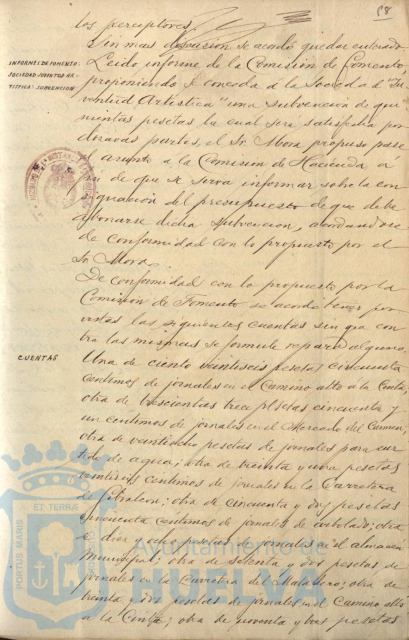 98
los perceptores.
Sin mas discusion se acordó quedar enterado.
INFORME DE FOMENTO.
SOCIEDAD JUVENTUD AR-
TISTICA: SUBVENCION
Leido informe de la Comision de Fomento
proponiendo se conceda a la Sociedad "Ju-
ventud Artistica" una subvencion de qui-
nientas pesetas la cual será satisfecha por
dozavas partes, el Sr. Mora propuso pase
asunto a la Comision de Hacienda á
fin de que se sirva informar sobre la con-
signacion del presupuesto de que debe
abonarse dicha subvencion, acordandose
de conformidad con lo propuesto por el
Sr. Mora.
De conformidad con lo propuesto por la
Comision de Fomento se acordó
las siguientes cuentas sin que con-
tra las mismas se formule reparo alguno.
CUENTAS
Una de ciento veintiseis pesetas cincuenta
centimos de jornales en el Camino alto a la Cinta;
otra de trescientas trece pesetas cincuenta y
un centimos de jornales en el Mercado del Carmen;
otra de veintiocho pesetas de jornales para
de agua; otra de treinta y una pesetas
centimos de jornales en la Carretera
de Gibraleon; otra de cincuenta y dos pesetas
cincuenta centimos de jornales de arbolado; otra
de diez y ocho pesetas de jornales en el almacén
Municipal; otra de setenta y dos pesetas de
jornales en la Carretera del Matadero; otra de
treinta y dos pesetas de jornales en el Camino alto
a la Cinta; otra de noventa y tres pesetas
PORTUS MARIS ET TERRAE
Ayuntamiento de
HUELVA